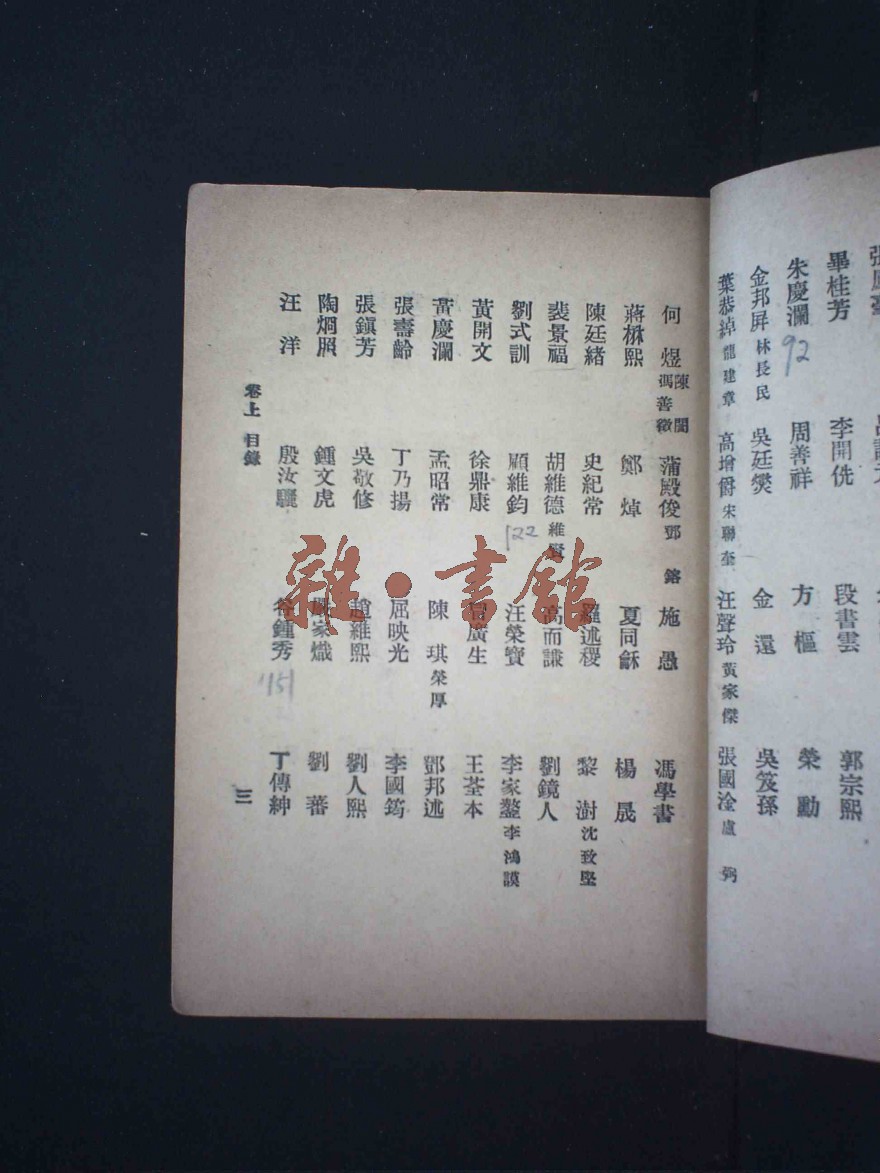 畢桂芳 李開侁 段書雲 郭宗熙
朱慶瀾 92 周善祥 方樞 榮勳
金邦屏 林長民 吳廷燮 金還 吳笈孫
葉恭綽 龍建章 高增爵 宋聯奎 汪聲玲 黃家傑 張國淦 盧弼
何煜 陳閩 馮善徵 蒲殿俊 鄧鎔 施愚 馮學書
蔣楙熙 鄭焯 夏同龢 楊晟
陳廷緒 史紀常 羅述稷 黎澍 沈致堅
裴景福 胡維德 維賢 高而謙 劉鏡人
劉式訓 顧維鈞 122 汪榮寶 李家鏊 李鴻謨
黃開文 徐鼎康 廣生 王荃本
黃慶瀾 孟昭常 陳琪 榮厚 鄧邦述
張壽齡 丁乃揚 屈映光 李國筠
張鎭芳 吳敬修 趙維熙 劉人熙
陶烱照 鍾文虎 嚴家熾 劉蕃
汪洋 殷汝驪 谷鍾秀 151 丁傳紳
卷上 目錄 三
雜·書館